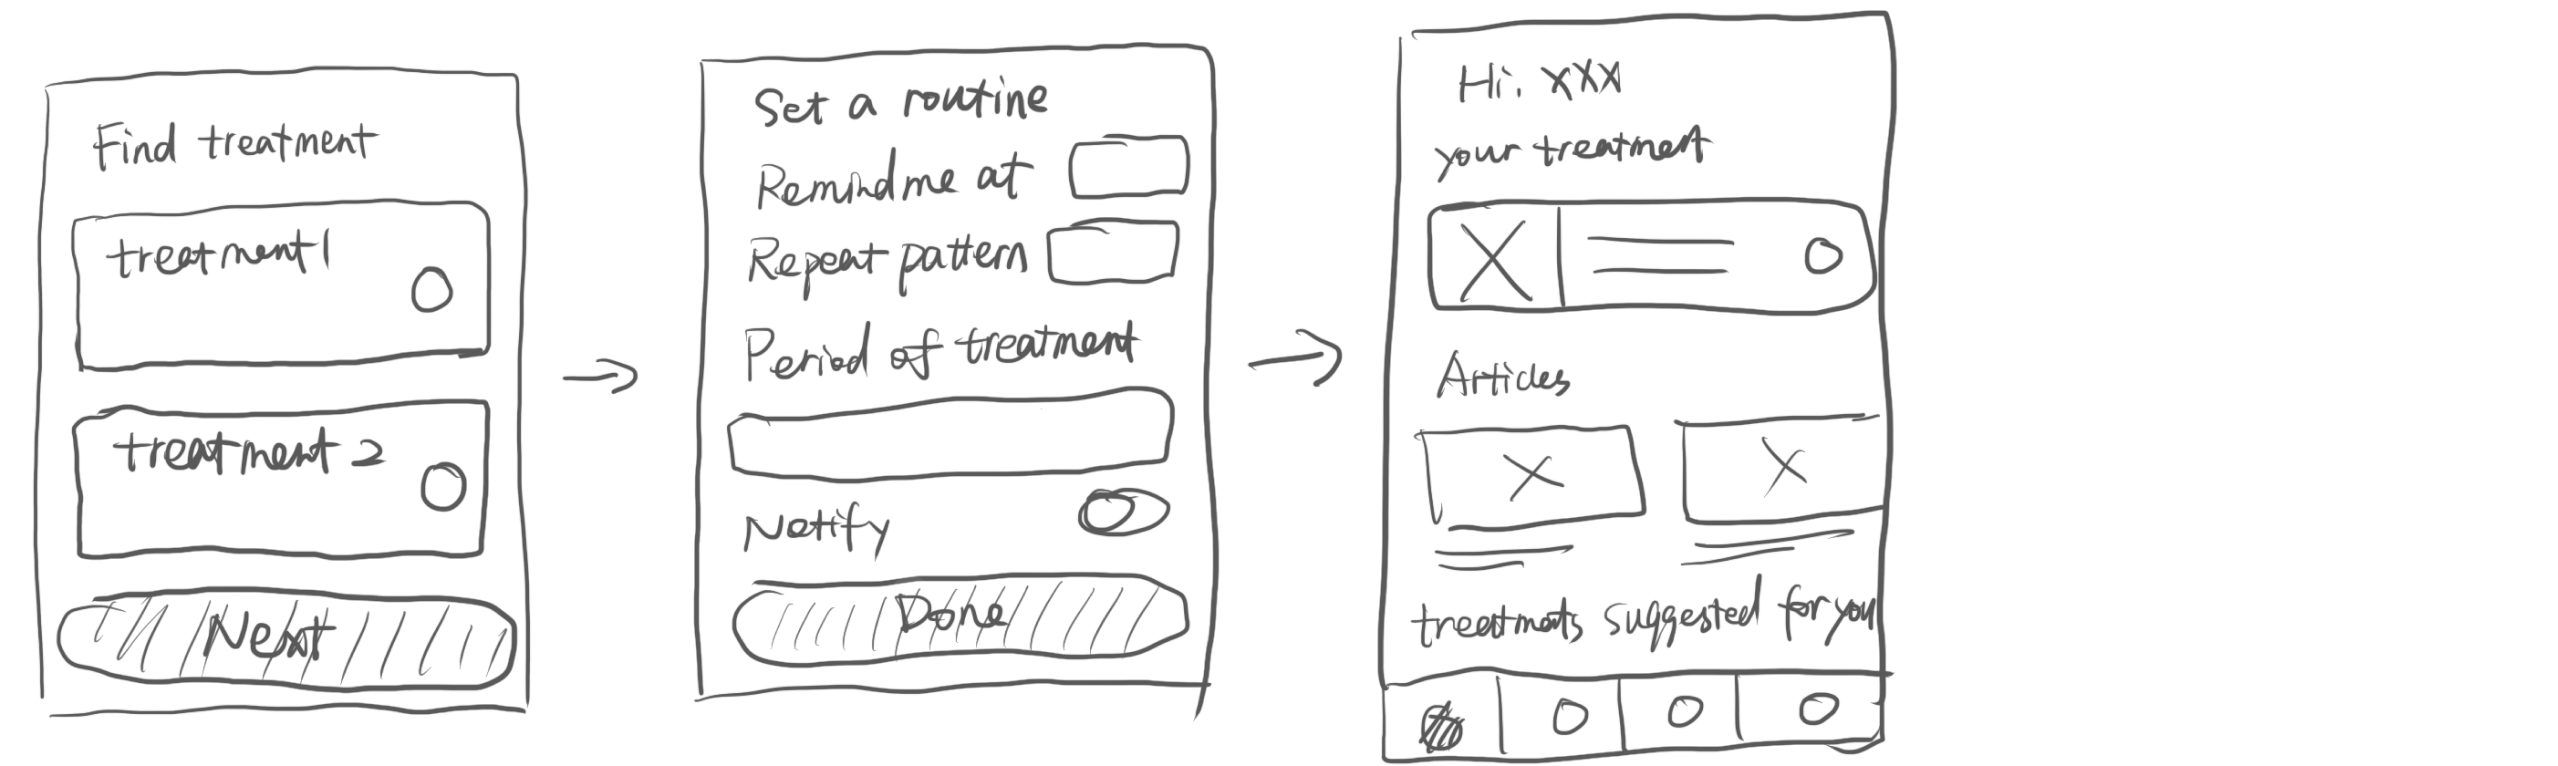 Find treatment
treatment1
treatment2
Next
Set a routine
Remind me at
Repeat pattern
Period of treatment
Notify
Done
Hi. XXX
your treatment
Articles
treatments suggested for you